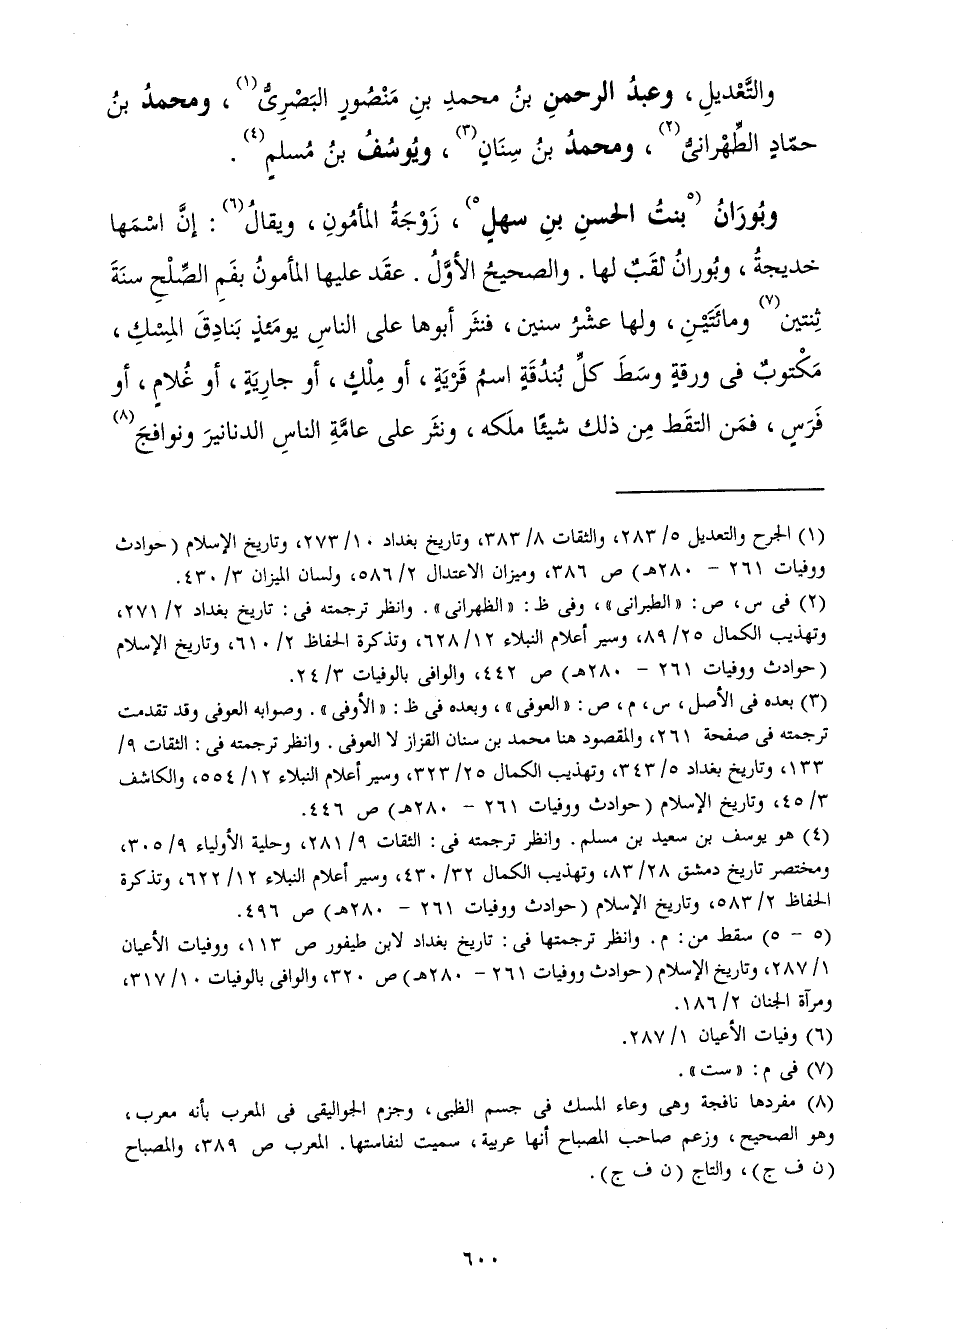 والتَّعْديلِ ، وعبدُ الرحمنِ بنُ محمدِ بنِ مَنْصُورٍ البَصْرِىُّ(١) ، ومحمدُ بنُ
حمّادٍ الطِّهْرانىُّ(٢) ، ومحمدُ بنُ سِنَانٍ(٣) ، ويُوسُفُ بنُ مُسلمٍ(٤) .
وبُورَانُ (٥بنتُ الحسنِ بنِ سهلٍ٥) ، زَوْجَةُ المأمُونِ ، ويقالُ(٦) : إنَّ اسْمَها
خديجةُ ، وبُورانُ لَقَبٌ لها . والصحيحُ الأوَّلُ . عقَد عليها المأمونُ بفَمِ الصِّلْحِ سنَةَ
ثِنتين(٧) ومائَتَيْنِ ، ولها عشْرُ سنين ، فنثَر أبوها على الناسِ يومَئذٍ بَنادِقَ المِسْكِ ،
مَكْتوبٌ فى ورقةٍ وسَطَ كلِّ بُندُقَةٍ اسمُ قَرْيَةٍ ، أو مِلْكٍ ، أو جارِيَةٍ ، أو غُلامٍ ، أو
فَرَسٍ ، فمَن التقَط مِن ذلك شيئًا ملَكه ، ونثَر على عامَّةِ الناسِ الدنانيرَ ونوافجَ(٨)
(١) الجرح والتعديل ٥/ ٢٨٣، والثقات ٨/ ٣٨٣، وتاريخ بغداد ١٠/ ٢٧٣، وتاريخ الإسلام (حوادث
ووفيات ٢٦١ - ٢٨٠هـ) ص ٣٨٦، وميزان الاعتدال ٢/ ٥٨٦، ولسان الميزان ٣/ ٤٣٠.
(٢) فى س، ص: «الطبرانى» ، وفى ظ: «الظهرانى» . وانظر ترجمته فى: تاريخ بغداد ٢/ ٢٧١،
وتهذيب الكمال ٢٥/ ٨٩، وسير أعلام النبلاء ١٢/ ٦٢٨، وتذكرة الحفاظ ٢/ ٦١٠، وتاريخ الإسلام
(حوادث ووفيات ٢٦١ - ٢٨٠هـ) ص ٤٤٢، والوافى بالوفيات ٣/ ٢٤.
(٣) بعده فى الأصل، س، م، ص: «العوفى» ، وبعده فى ظ: «الأوفى» . وصوابه العوفى وقد تقدمت
ترجمته فى صفحة ٢٦١، والمقصود هنا محمد بن سنان القزاز لا العوفى . وانظر ترجمته فى: الثقات ٩/
١٣٣، وتاريخ بغداد ٥/ ٣٤٣، وتهذيب الكمال ٢٥/ ٣٢٣، وسير أعلام النبلاء ١٢/ ٥٥٤، والكاشف
٣/ ٤٥، وتاريخ الإسلام (حوادث ووفيات ٢٦١ - ٢٨٠هـ) ص ٤٤٦.
(٤) هو يوسف بن سعيد بن مسلم . وانظر ترجمته فى: الثقات ٩/ ٢٨١، وحلية الأولياء ٩/ ٣٠٥،
ومختصر تاريخ دمشق ٢٨/ ٨٣، وتهذيب الكمال ٣٢/ ٤٣٠، وسير أعلام النبلاء ١٢/ ٦٢٢، وتذكرة
الحفاظ ٢/ ٥٨٣، وتاريخ الإسلام (حوادث ووفيات ٢٦١ - ٢٨٠هـ) ص ٤٩٦.
(٥ - ٥) سقط من: م . وانظر ترجمتها فى: تاريخ بغداد لابن طيفور ص ١١٣، ووفيات الأعيان
١/ ٢٨٧، وتاريخ الإسلام (حوادث ووفيات ٢٦١ - ٢٨٠هـ) ص ٣٢٠، والوافى بالوفيات ١٠/ ٣١٧،
ومرآة الجنان ٢/ ١٨٦.
(٦) وفيات الأعيان ١/ ٢٨٧.
(٧) فى م: «ست» .
(٨) مفردها نافجة وهى وعاء المسك فى جسم الظبى ، وجزم الجواليقى فى المعرب بأنه معرب ،
وهو الصحيح ، وزعم صاحب المصباح أنها عربية ، سميت لنفاستها. المعرب ص ٣٨٩، والمصباح
(ن ف ج)، والتاج (ن ف ج).
٦٠٠